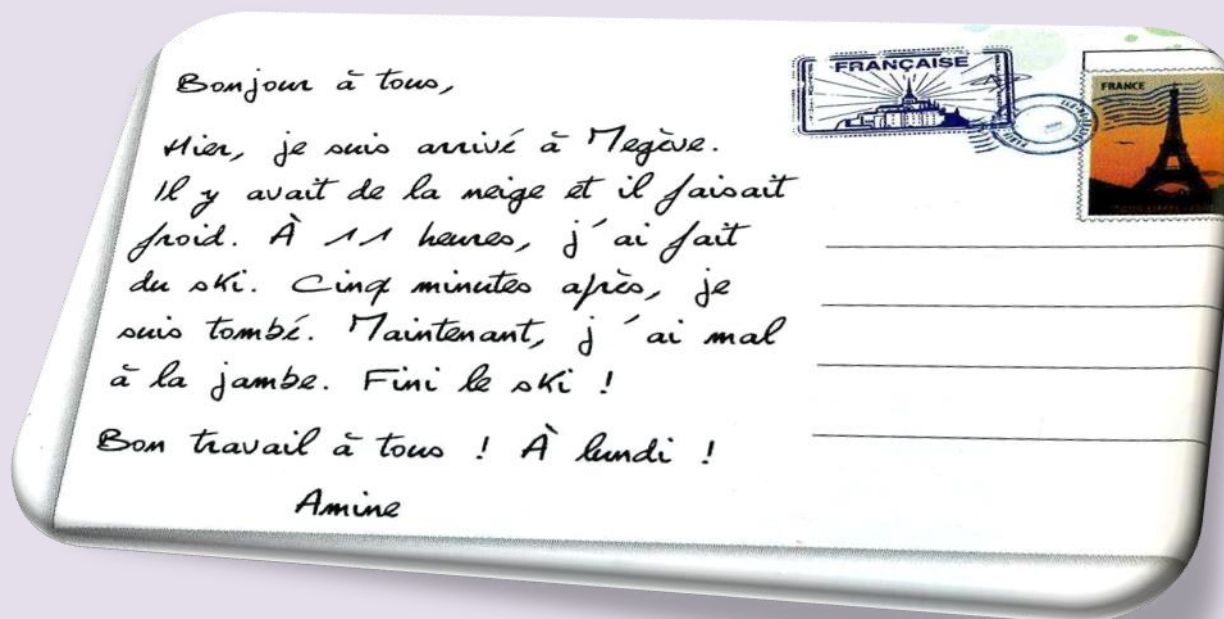 Bonjour à tous,
Hier, je suis arrivé à Megève.
Il y avait de la neige et il faisait
froid. À 11 heures, j'ai fait
du ski. Cinq minutes après, je
suis tombé. Maintenant, j'ai mal
à la jambe. Fini le ski !
Bon travail à tous ! À lundi !
Amine
FRANÇAISE
FRANCE